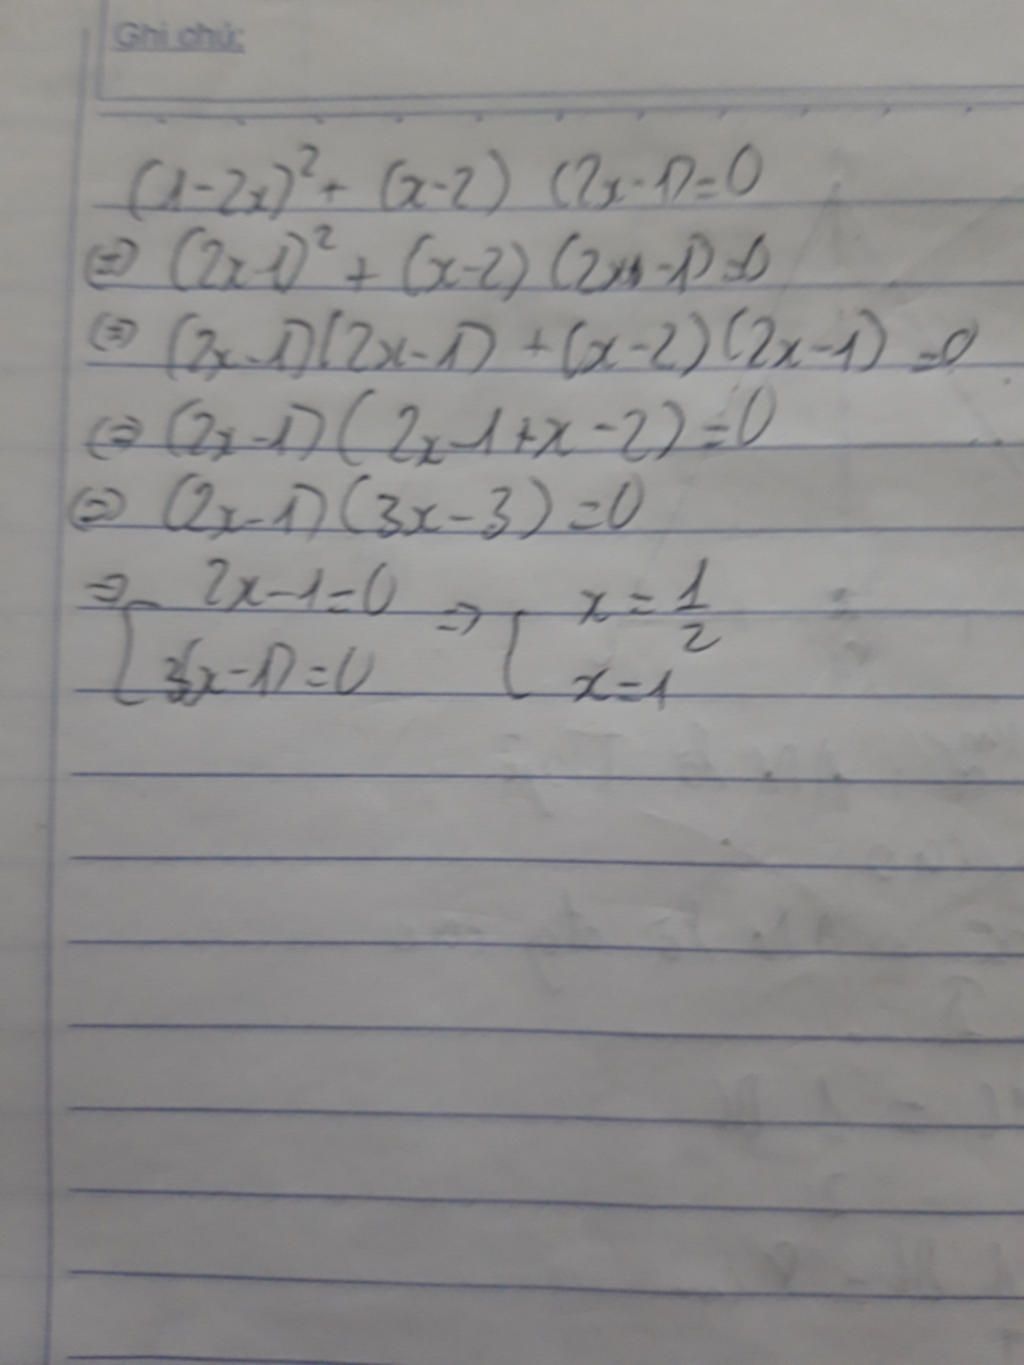 Ghi chú:
(1-2x)² + (x-2) (2x-1)=0
⇔ (2x-1)² + (x-2) (2x-1)=0
⇔ (2x-1)(2x-1) + (x-2)(2x-1) =0
⇔ (2x-1)(2x-1+x-2)=0
⇔ (2x-1)(3x-3)=0
⇒ [ 2x-1=0 ⇒ [ x = 1/2
3(x-1)=0 x=1